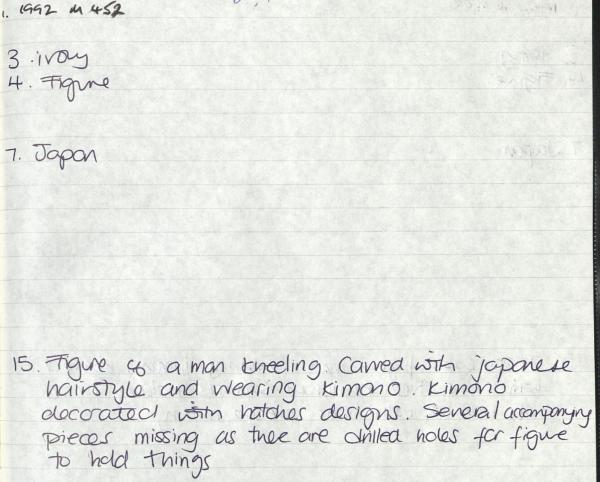 1. 1992 M 452
3. ivory
4. Figure
7. Japan
15. Figure of a man kneeling. Carved with japanese
hairstyle and wearing kimono. Kimono
decorated with hatches designs. Several accompanying
pieces missing as there are drilled holes for figure
to hold things